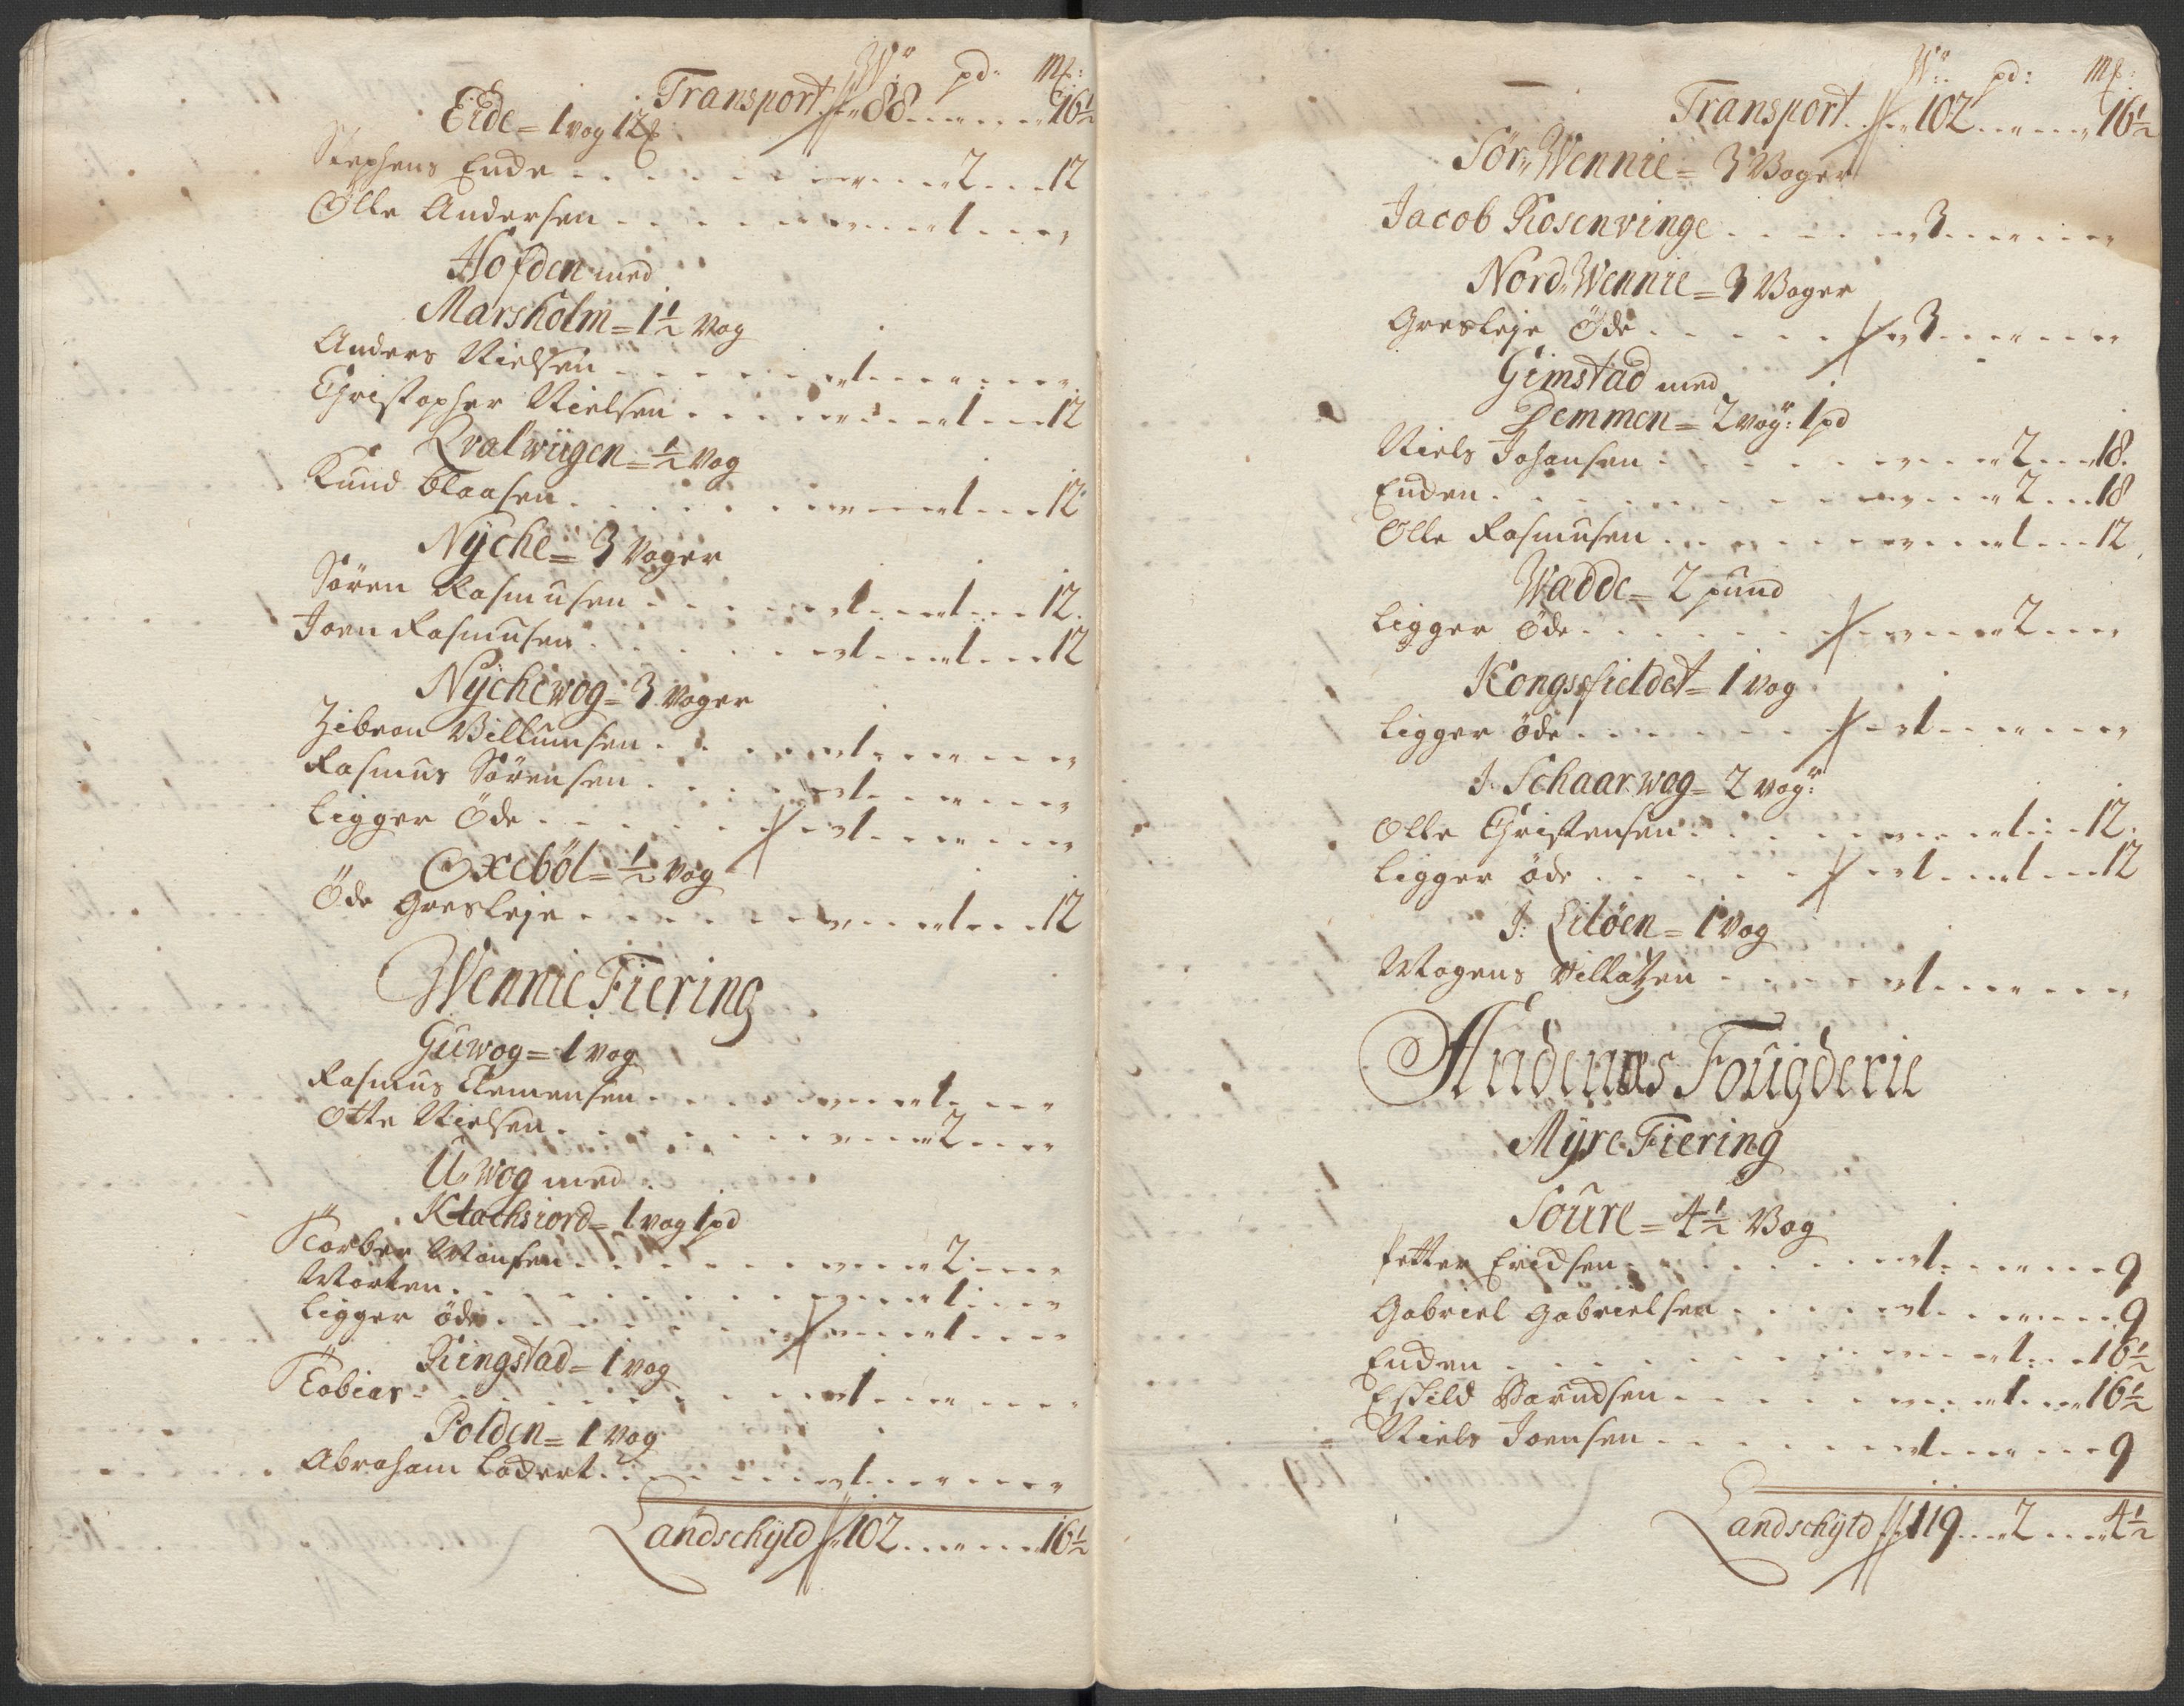 Wr pd: mk:
Transport 88 " 16½
Eide = 1 vog 12 mk
Stephens Ende " 2 12
Olle Andersen " 1 "
Hofden med
Marsholm = 1½ Vog
Anders Nielsen 1 " "
Christopher Nielsen " 1 12
Qvalwiigen = ½ Vog
Knud Claasen " 1 12
Nÿche = 3 Voger
Sören Rasmusen 1 1 12
Joen Rasmusen 1 1 12
Nÿchewog = 3 Voger
Zibran Villumsen 1 " "
Rasmus Sörensen 1 " "
Ligger Öde 1 " "
Oxeböl = ½ Vog
Öde Gresleje " 1 12
Wennie Fiering
Guwog = 1 Vog
Rasmus Clemensen " 1 "
Otte Nielsen " 2 "
U"wog med
Klachsiord = 1 vog 1 pd
Torber Monsen " 2 "
Morten " 1 "
Ligger öde " 1 "
Ringstad = 1 vog
Tobias 1 " "
Polden = 1 Vog
Abraham Lodert 1 " "
Landschÿld 102 " 16½
Wr: pd: mk:
Transport 102 " 16½
Sör" Wennie = 3 Voger
Jacob Rosenvinge 3 " "
Nord" Wennie = 3 Voger
Gresleje Öde 3 " "
Gimstad med
Demmen = 2 vogr: 1 pd
Niels Johansen " 2 18
Enden " 2 18
Olle Rasmusen " 1 12
Wadde = 2 pund
Ligger Öde " 2 "
Kongssfieldet = 1 Vog
Ligger öde 1 " "
J. Schaarwog = 2 vogr:
Olle Christensen " 1 12
Ligger öde 1 1 12
J: Liløen = 1 Vog
Mogens Villatzen 1 " "
Andenæs Fougderie
Mÿre Fiering
Soure = 4½ Vog
Petter Eridsen 1 " 9
Gabriel Gabrielsen 1 " 9
Enden " 1 16½
Eskild Barudsen " 1 16½
Niels Joensen 1 " 9
Landschÿld 119 2 4½